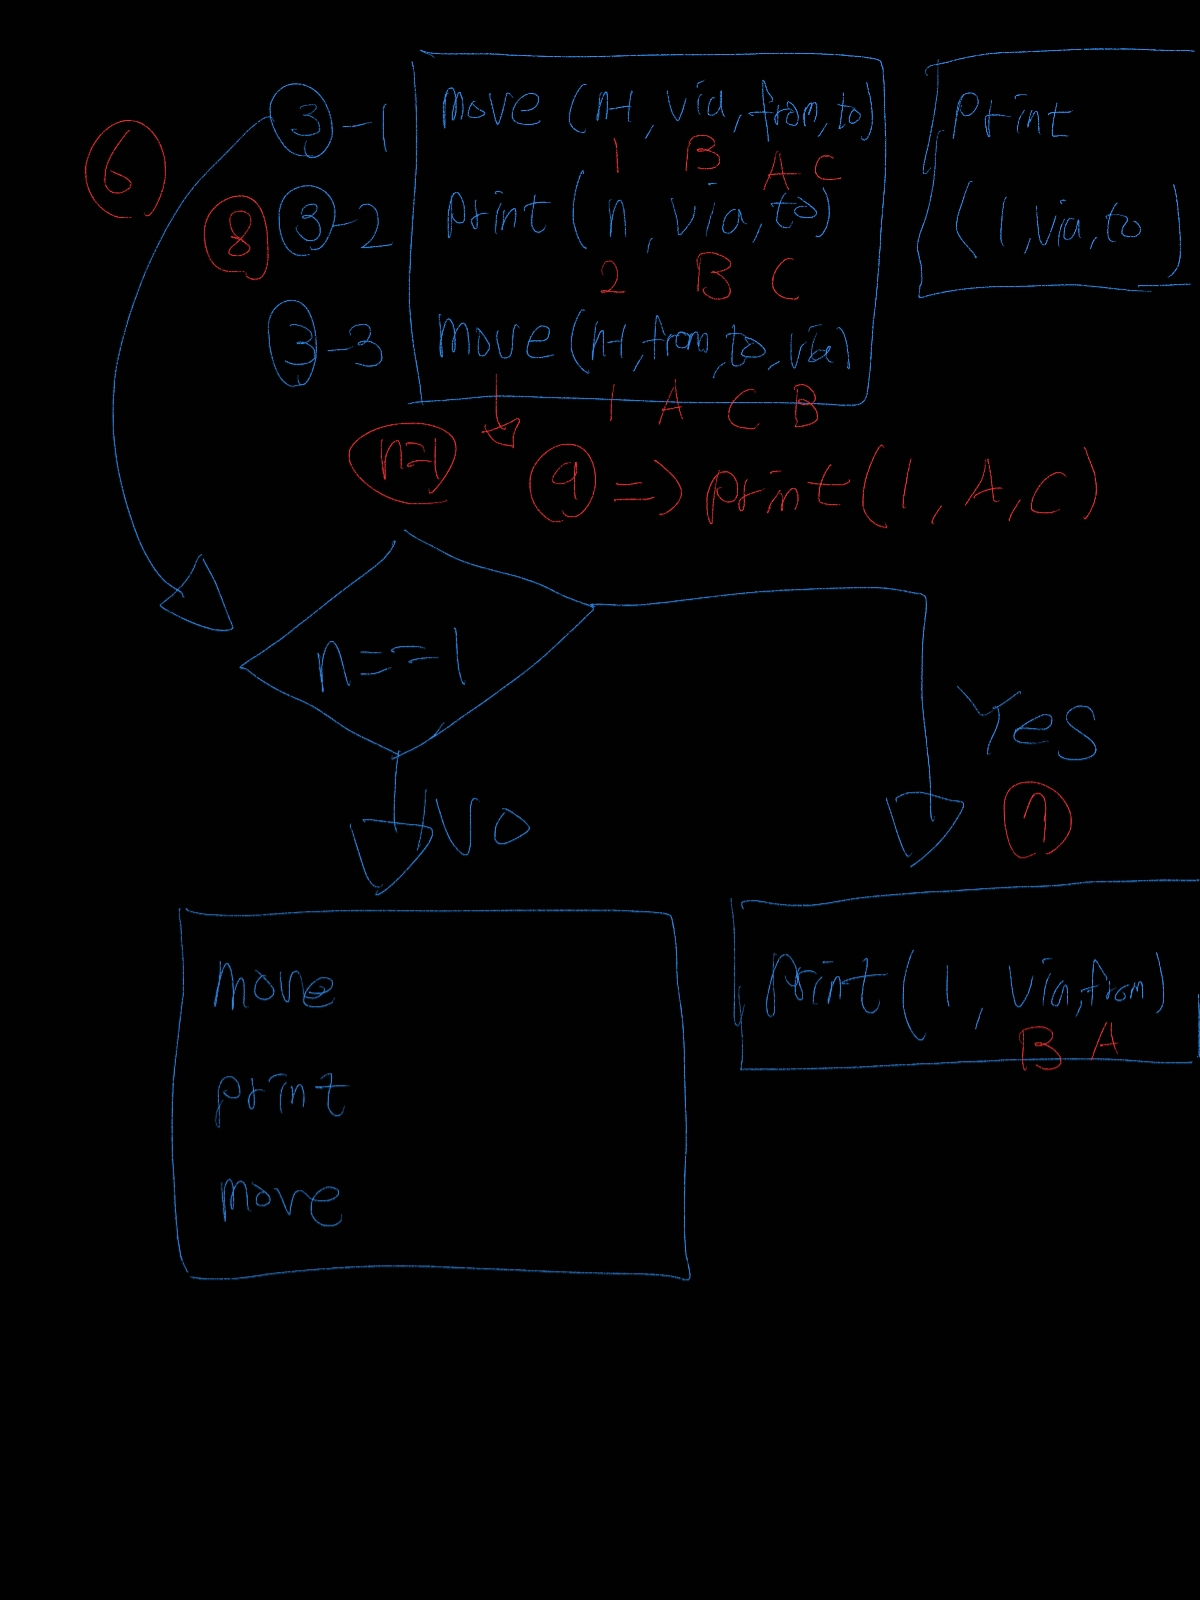 3-1 move (n-1, via, from, to)
1 B A C
6
8 3-2 print (n, via, to)
2 B C
3-3 move (n-1, from, to, via)
1 A C B
print
(1, via, to)
n=1 9 => print (1, A, C)
n==1
Yes
7
No
move
print
move
print (1, via, from)
B A